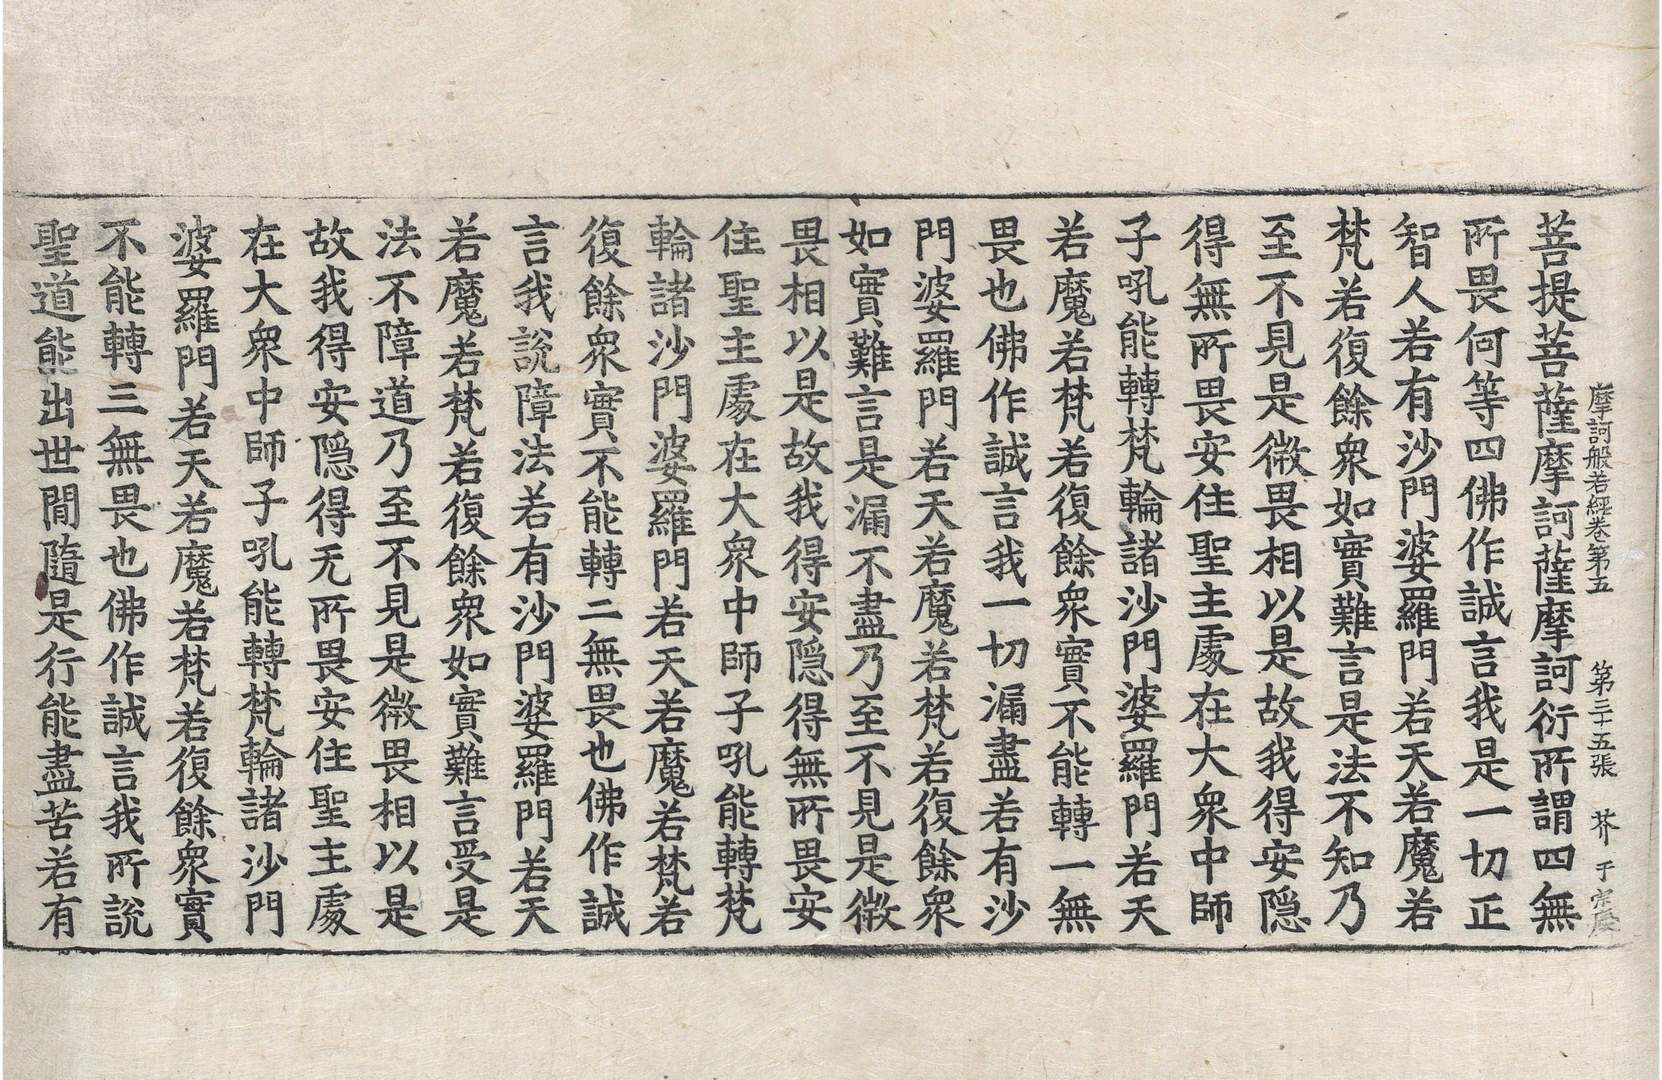 摩訶般若經卷第五 第三十五張 芥
菩提菩薩摩訶薩摩訶衍所謂四無
所畏何等四佛作誠言我是一切正
智人若有沙門婆羅門若天若魔若
梵若復餘衆如實難言是法不知乃
至不見是微畏相以是故我得安隠
得無所畏安住聖主處在大衆中師
子吼能轉梵輪諸沙門婆羅門若天
若魔若梵若復餘衆實不能轉一無
畏也佛作誠言我一切漏盡若有沙
門婆羅門若天若魔若梵若復餘衆
如實難言是漏不盡乃至不見是微
畏相以是故我得安隠得無所畏安
住聖主處在大衆中師子吼能轉梵
輪諸沙門婆羅門若天若魔若梵若
復餘衆實不能轉二無畏也佛作誠
言我説障法若有沙門婆羅門若天
若魔若梵若復餘衆如實難言受是
法不障道乃至不見是微畏相以是
故我得安隠得无所畏安住聖主處
在大衆中師子吼能轉梵輪諸沙門
婆羅門若天若魔若梵若復餘衆實
不能轉三無畏也佛作誠言我所説
聖道能出世間隨是行能盡苦若有